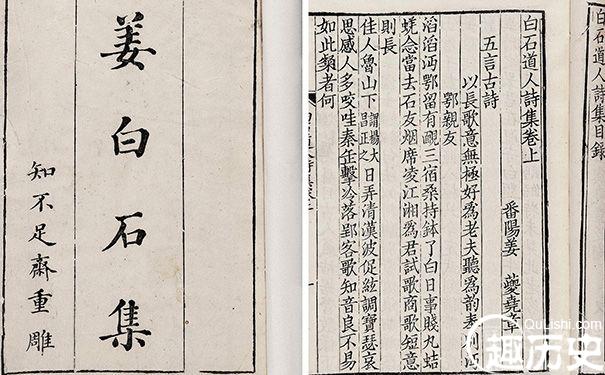 姜白石集
知不足齋重雕
白石道人詩集目録
白石道人詩集卷上
番陽姜 夔堯章
五言古詩
以長歌意無極好為老夫聽為韵奉別沔
鄂親友
滔滔沔鄂留有靦三宿桑持鉢了白日事賤丸蛣
蜣念當去石友烟席凌江湘為君試歌商歌短意
則長
佳人魯山下謂楊大昌正之日弄清漢波促絃調寶瑟哀
思感人多咬哇秦缶擊冷落郢客歌知音良不易
如此纇者何
QuLishi.com
趣历史